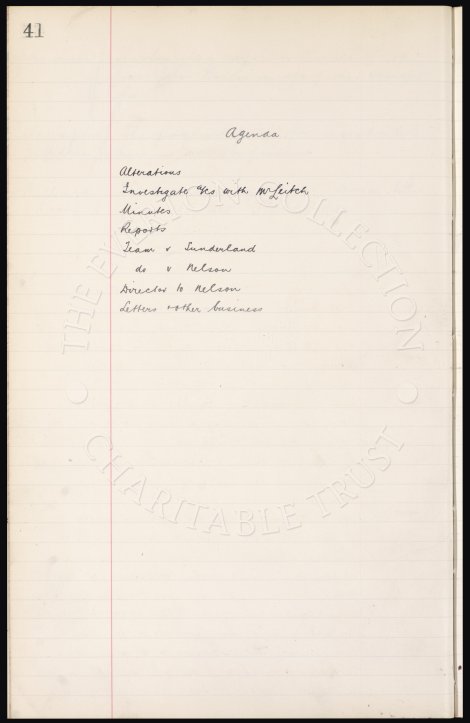 41
Agenda
Alterations
Investigate %cs with Mr Leitch
Minutes
Reports
Team v Sunderland
do v Nelson
Director to Nelson
Letters & other business
THE EVERTON COLLECTION
CHARITABLE TRUST